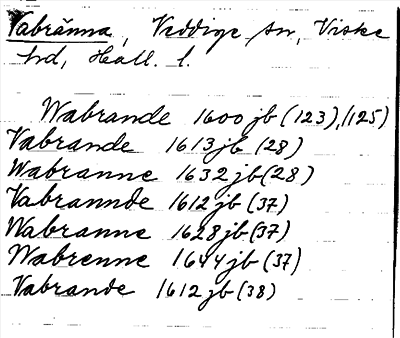 Vabränna, Veddige sn, Viske
hd, Hall. l.
Wabrande 1600 jb (123), (125)
Vabrande 1613 jb (28)
Wabranne 1632 jb (28)
Vabrannde 1612 jb (37)
Wabranne 1628 jb (37)
Wabrenne 1644 jb (37)
Vabrande 1612 jb (38)